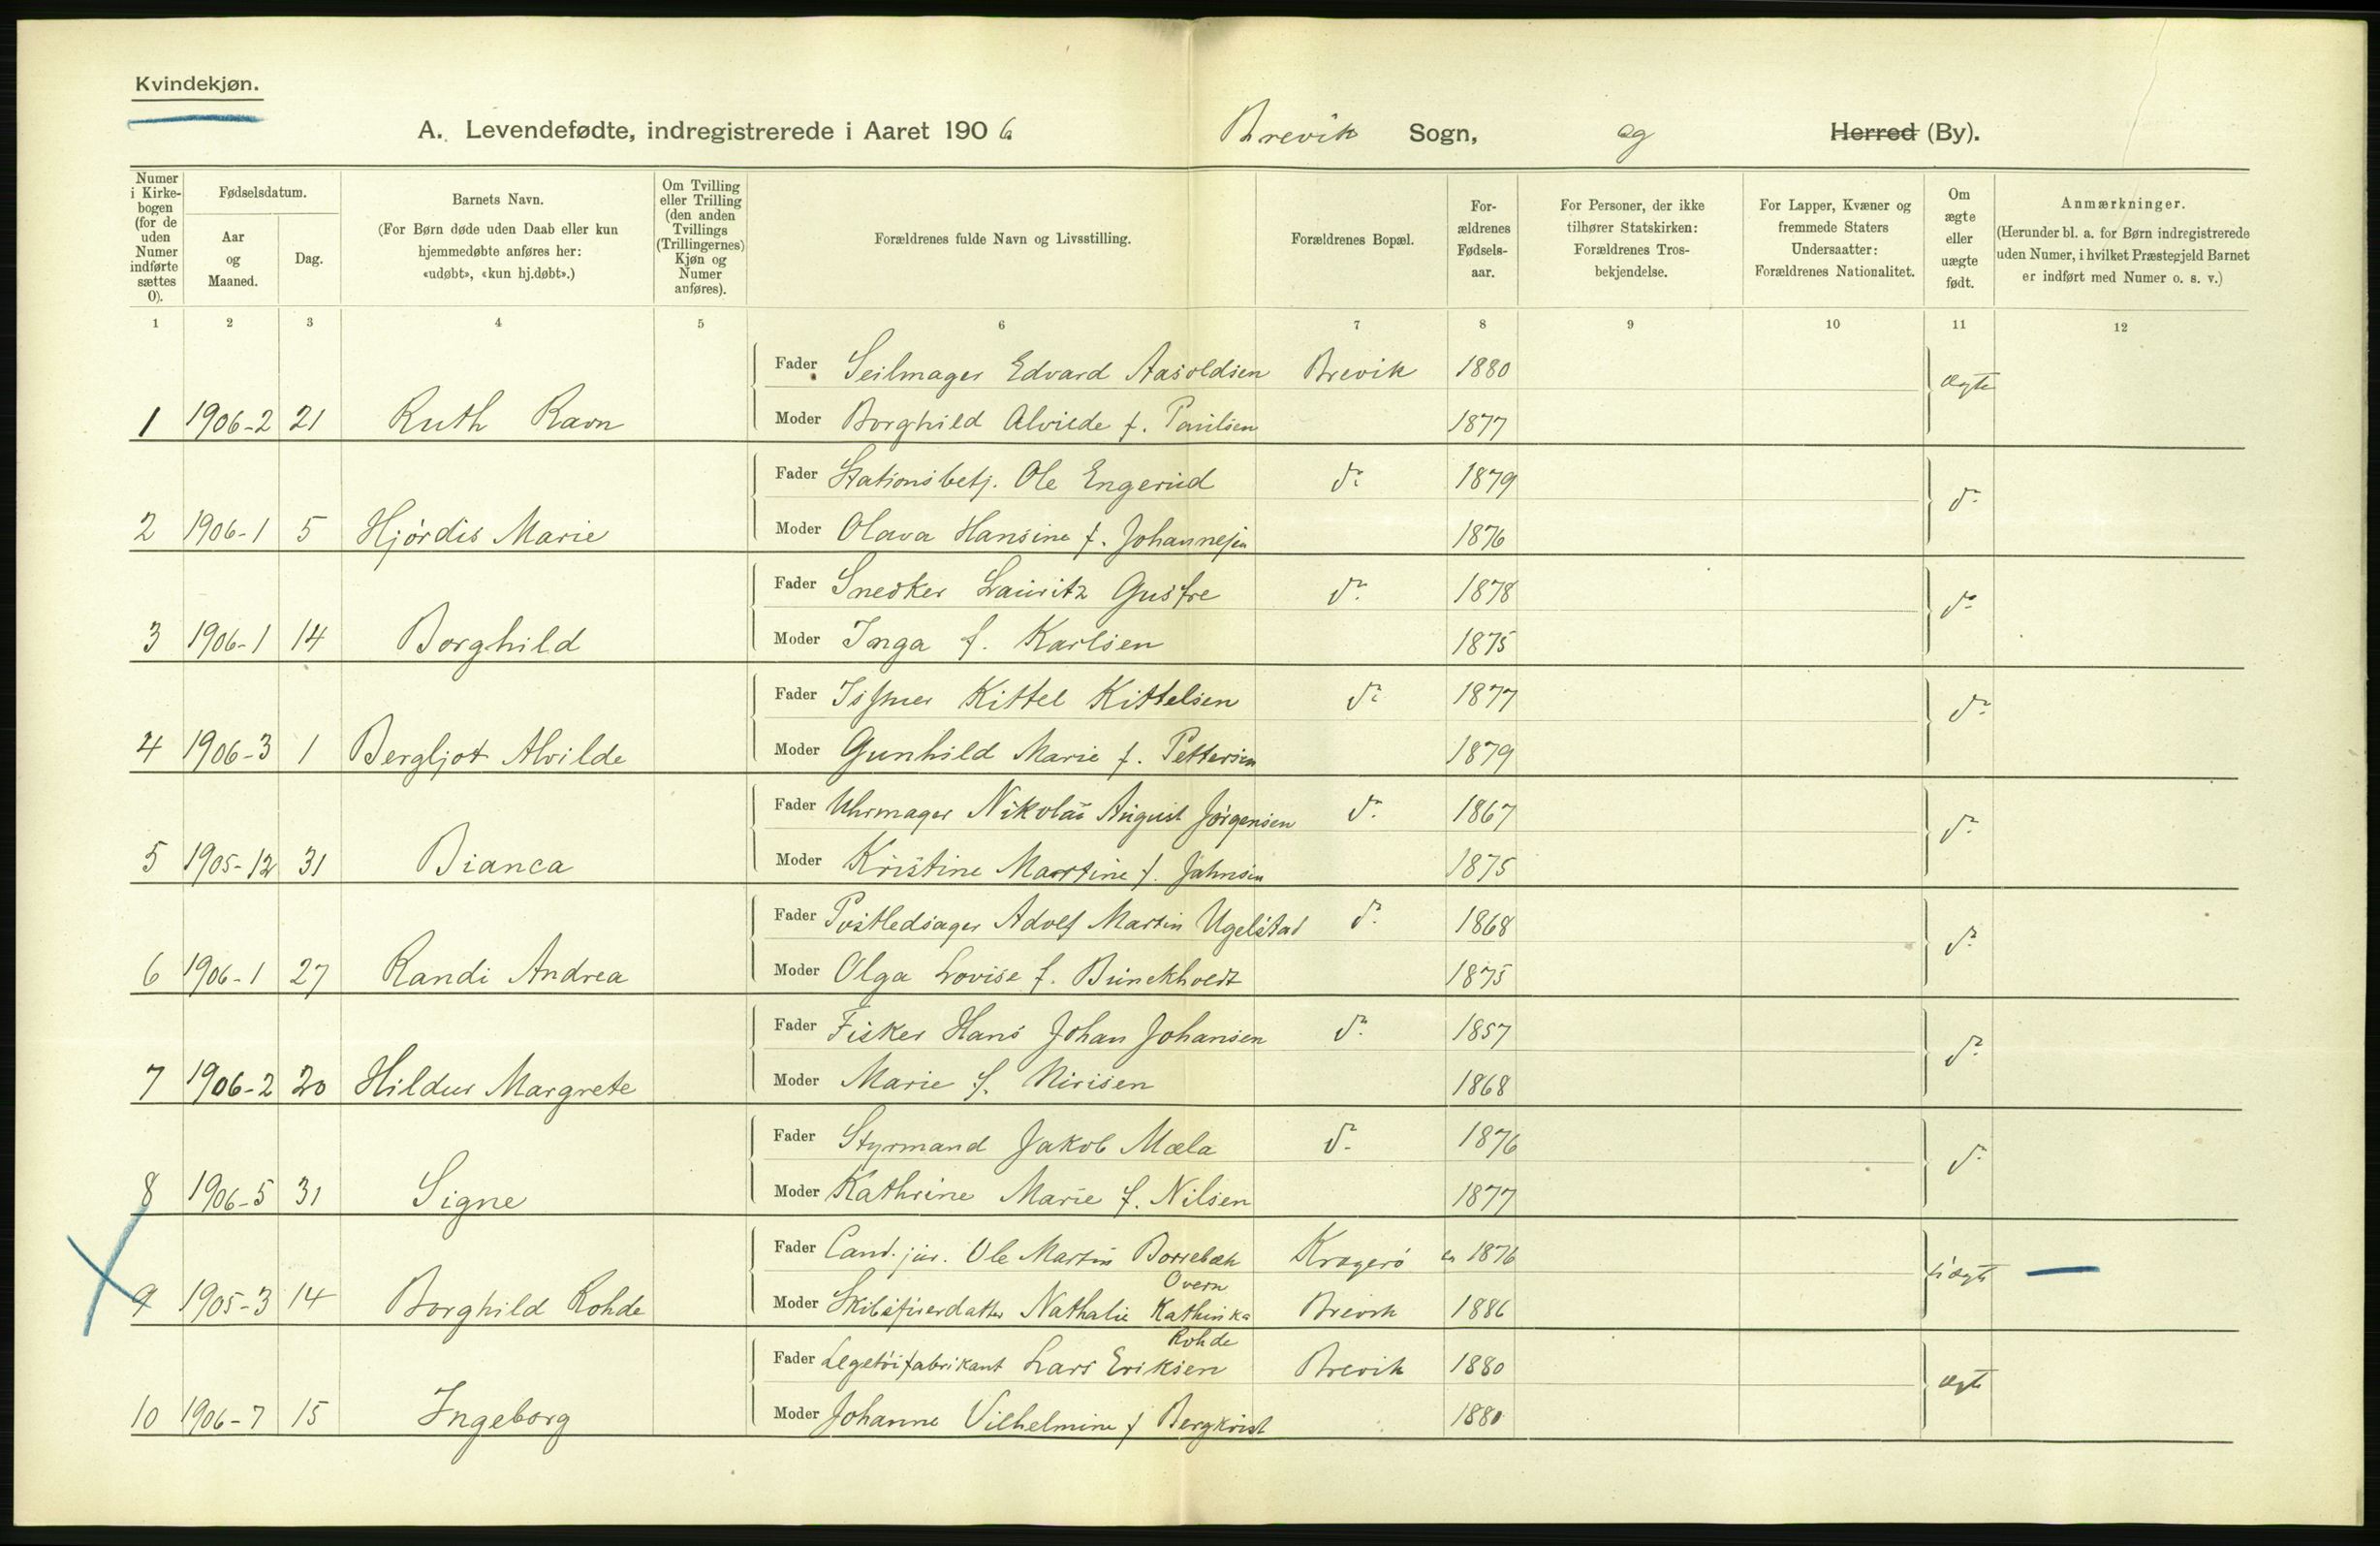 Kvindekjøn.
A. Levendefødte, indregistrerede i Aaret 1906 Brevik Sogn, og Herred (By).
Numer i Kirkebogen (for de uden Numer indførte sættes 0).
Fødselsdatum.
Aar og Maaned.
Dag.
Barnets Navn.
(For Børn døde uden Daab eller kun hjemmedøbte anføres her: «udøbt», «kun hj.døbt».)
Om Tvilling eller Trilling (den anden Tvillings (Trillingernes) Kjøn og Numer anføres).
Forældrenes fulde Navn og Livsstilling.
Forældrenes Bopæl.
Forældrenes Fødselsaar.
For Personer, der ikke tilhører Statskirken: Forældrenes Trosbekjendelse.
For Lapper, Kvæner og fremmede Staters Undersaatter: Forældrenes Nationalitet.
Om ægte eller uægte født.
Anmærkninger.
(Herunder bl. a. for Børn indregistrerede uden Numer, i hvilket Præstegjeld Barnet er indført med Numer o. s. v.)
1 2 3 4 5 6 7 8 9 10 11 12
Fader Seilmager Edvard Aasoldsen Brevik 1880 ægte
1 1906-2 21 Ruth Ravn Moder Borghild Alvilde f. Paulsen 1877
Fader Stationsbetj. Ole Engerud do 1879 do
2 1906-1 5 Hjördis Marie Moder Olava Hansine f. Johannesen 1876
Fader Snedker Lauritz Gusfre do 1878 do
3 1906-1 14 Borghild Moder Inga f. Karlsen 1875
Fader Kittel Kittelsen do 1877 do
4 1906-3 1 Bergljot Alvilde Moder Gunhild Marie f. Pettersen 1879
Fader Uhrmager Nikolai August Jörgensen do 1867 do
5 1905-12 31 Bianca Moder Kristine Martine f. Jahnsen 1875
Fader Postledsager Adolf Martin Ugelstad do 1868 do
6 1906-1 27 Randi Andrea Moder Olga Lovise f. Bunckholdt 1875
Fader Fisker Hans Johan Johansen do 1857 do
7 1906-2 20 Hildur Margrete Moder Marie f. Nirisen 1868
Fader Styrmand Jakob Mæla do 1876 do
8 1906-5 31 Signe Moder Kathrine Marie f. Nilsen 1877
Fader Cand. jur. Ole Martin Borrebæk Kragerö 1876 uægte
Overn
9 1905-3 14 Borghild Rohde Moder Skibsførerdatter Nathalie Kathinka Brevik 1886
Rohde
Fader Legetöifabrikant Lars Eriksen Brevik 1880 ægte
10 1906-7 15 Ingeborg Moder Johanne Vilhelmine f Bergkvist 1880